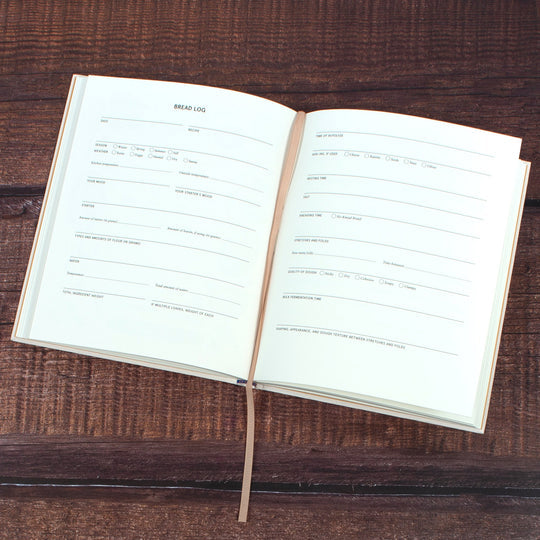 BREAD LOG
DATE
RECIPE
SEASON Winter Spring Summer Fall
WEATHER Foggy Humid Dry
Kitchen temperature: Outside temperature:
YOUR MOOD YOUR STARTER'S MOOD
STARTER
Amount of starter (in grams): Amount of leaven if using (in grams):
TYPES AND AMOUNTS OF FLOUR (IN GRAMS)
WATER
Temperature: Total amount of water:
TOTAL INGREDIENT WEIGHT IF MULTIPLE LOAVES, WEIGHT OF EACH
TIME OF AUTOLYSE
ADD-INS, IF USED Cheese Raisins Seeds Nuts Olives
RESTING TIME
SALT
KNEADING TIME No-Knead Bread
STRETCHES AND FOLDS
How many folds: Time between:
QUALITY OF DOUGH Sticky Dry Cohesive Soupy Clumpy
BULK FERMENTATION TIME
APPEARANCE, AND DOUGH TEXTURE BETWEEN STRETCHES AND FOLDS